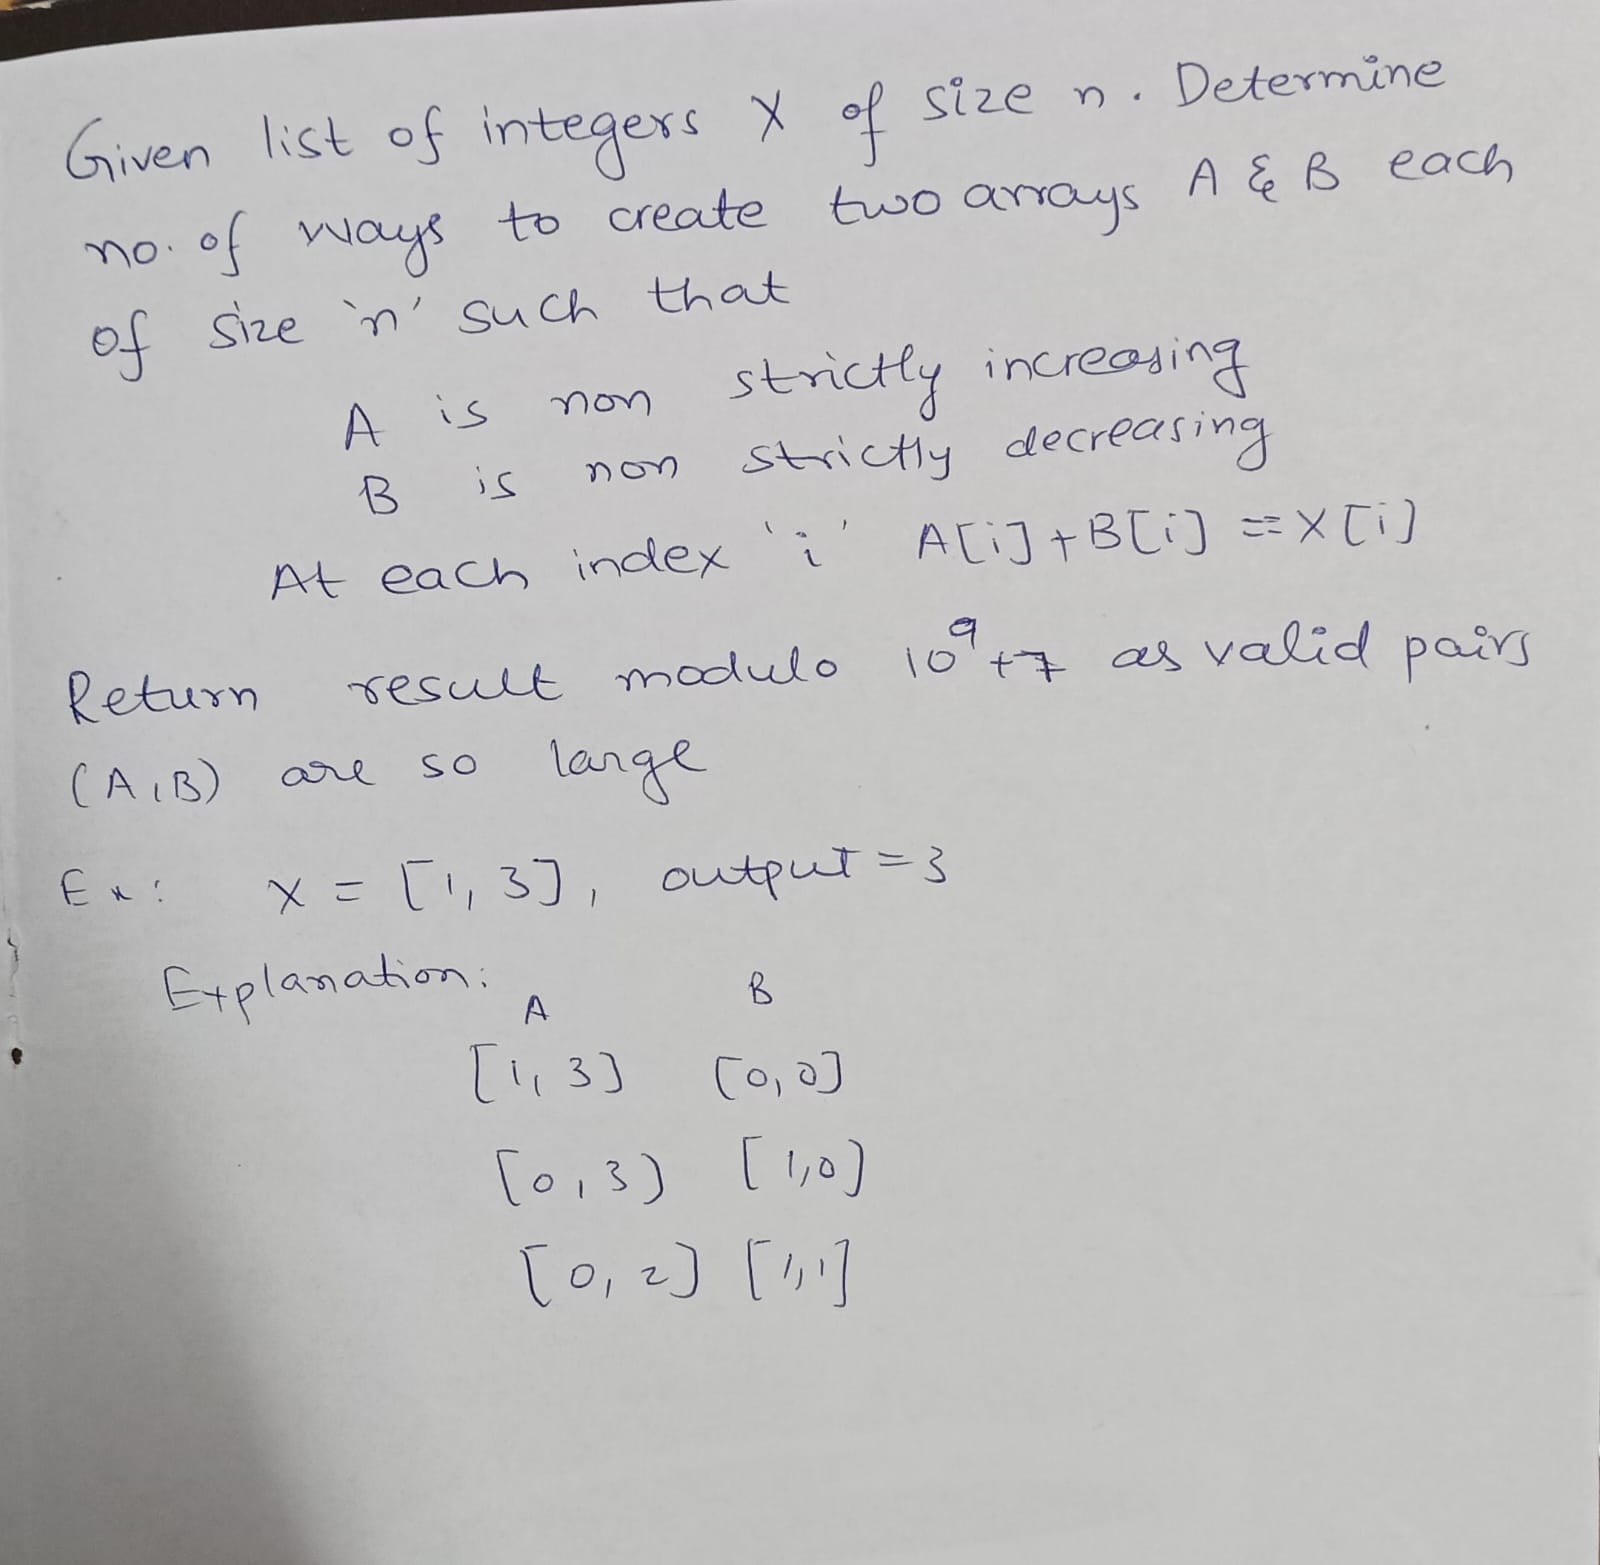 Given list of integers X of size n. Determine
no. of ways to create two arrays A & B each
of size 'n' such that
A is non strictly increasing
B is non strictly decreasing
At each index 'i' A[i]+B[i] == X[i]
Return result modulo 10⁹+7 as valid pairs
(A,B) are so large
Ex: X = [1, 3], output = 3
Explanation:
A B
[1, 3] [0,0]
[0, 3] [1,0]
[0, 2] [1,1]